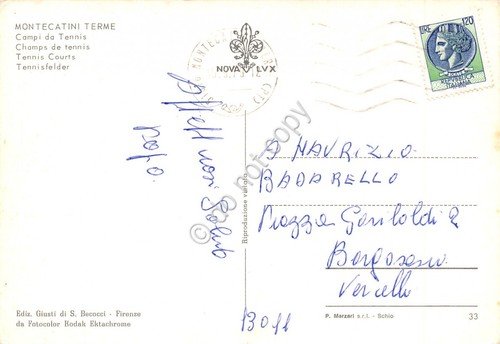 MONTECATINI TERME
Campi da Tennis
Champs de tennis
Tennis Courts
Tennisfelder
NOVA LVX
LIRE 120
Affettuosi Saluti
Do not copy
Riproduzione vietata
A MAURIZIO
BADARELLO
Piazza Garibaldi 2
Borgosesia
Vercelli
13011
Ediz. Giusti di S. Becocci - Firenze
da Fotocolor Kodak Ektachrome
P. Marzari s.r.l. - Schio
33